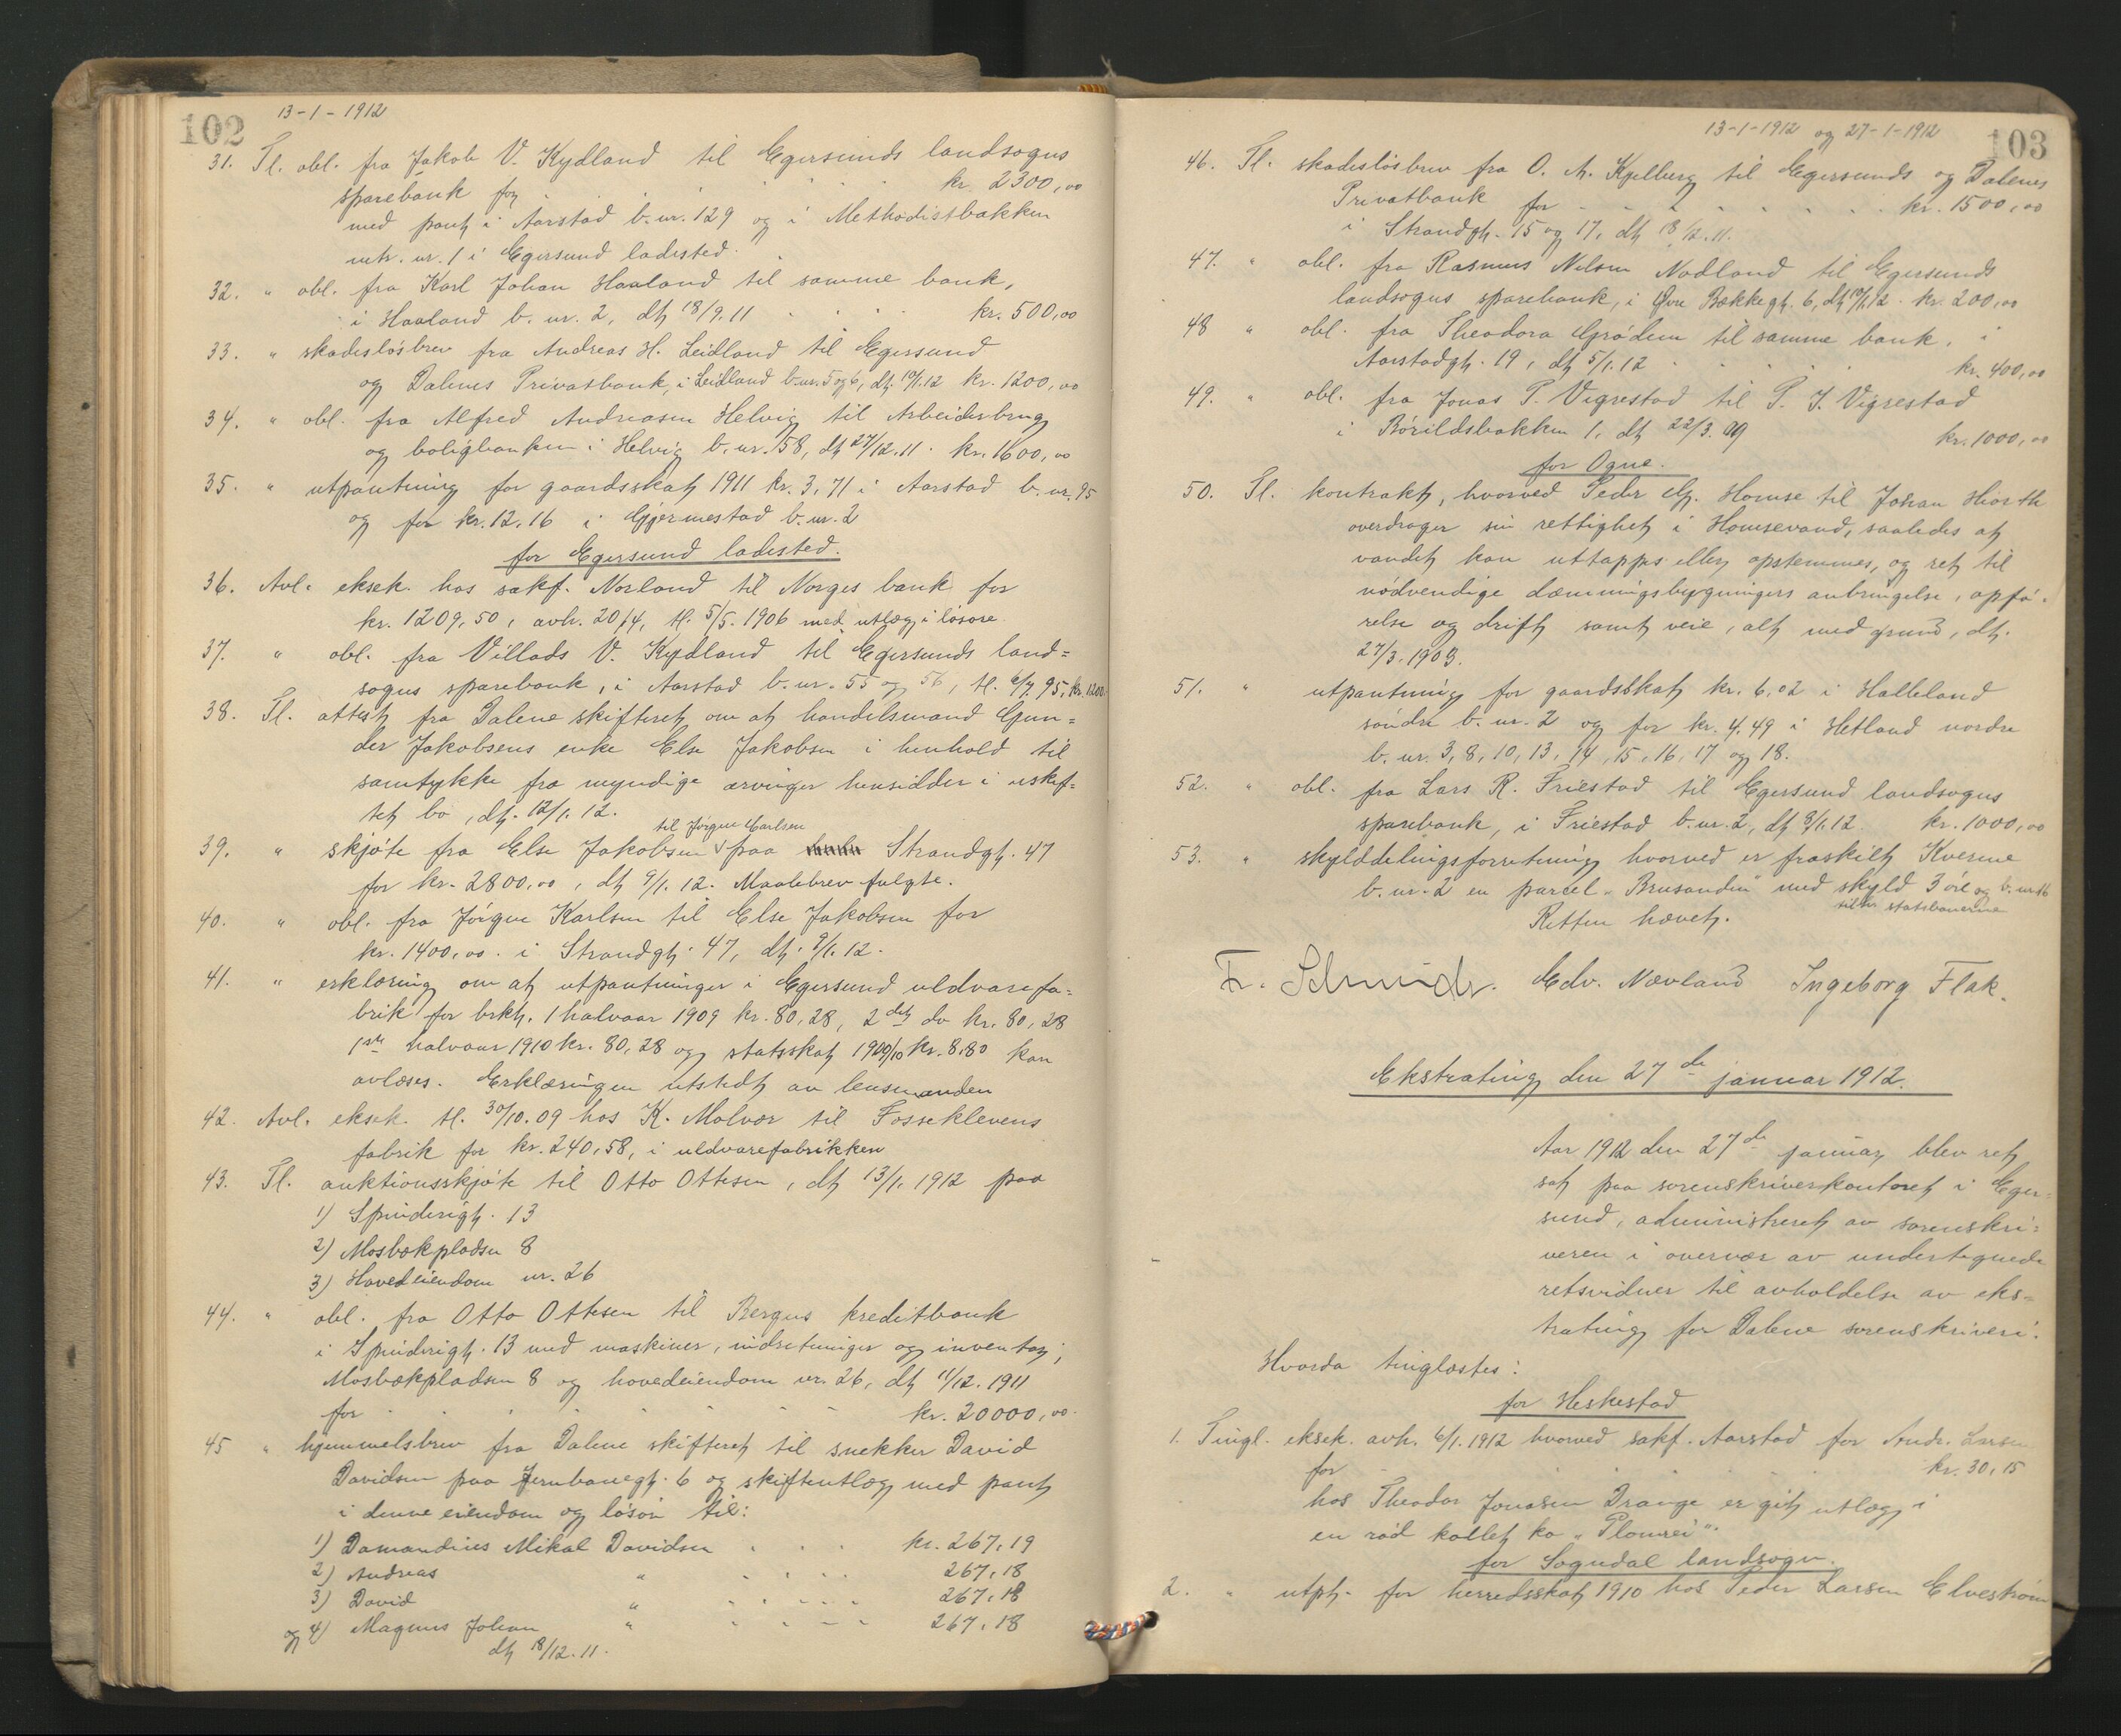 102
13-1-1912
31. Tl. obl. fra Jakob V. Kydland til Egersunds landsogns
sparebank for kr. 2300,00
med pant i Aarstad b.nr. 129 og i Methodistbakken
matr. nr. 1 i Egersund ladested.
32. " obl. fra Karl Johan Haaland til samme bank,
i Haaland b. nr. 2, dt 18/9. 11 kr. 500,00
33. " skadesløsbrev fra Andreas H. Leidland til Egersund
og Dalenes Privatbank, i Leidland b.nr. 5 og 6, dt. 10/1.12 kr. 1200,00
34. " obl. fra Alfred Andreasen Helvig til Arbeidsbrug
og boligbanken i Helvig b. nr. 58, dt 27/12.11. kr. 1600,00
35. " utpantning for gaardsskat 1911 kr. 3,71 i Aarstad b.nr. 95
og for kr. 12.16 i Gjermestad b.nr. 2
for Egersund ladested.
36. Avl. eksek. hos sakf. Norland til Norges bank for
kr. 1209,50, avh. 20/4, tl. 5/5. 1906 med utlæg i løsøre.
37. " obl. fra Villads V. Kydland til Egersunds land=
sogns sparebank, i Aarstad b.nr. 55 og 56, tl. 6/7 95, kr. 1200
38. Tl. attest fra Dalene skifteret om at handelsmand Gun=
der Jakobsens enke Else Jakobsen i henhold til
samtykke fra myndige arvinger hensidder i uskif=
tet bo, dt. 12/1. 12.
til Jørgen Carlsen
39. " skjøte fra Else Jakobsen v paa Strandgt. 47
for kr. 2800,00, dt 9/1. 12. Maalebrev fulgte.
40. " obl. fra Jørgen Karlsen til Else Jakobsen for
kr. 1400,00. i Strandgt. 47, dt. 9/1. 12.
41. " erklæring om at utpantninger i Egersund uldvarefa=
brik for brkt. 1 halvaar 1909 kr. 80,28, 2det do kr. 80,28
1ste halvaar 1910 kr. 80,28 og statsskat 1909/10 kr. 8,80 kan
avlæses. Erklæringen utstedt av lensmanden
42. Avl. eksek. tl. 30/10. 09 hos K. Malvær til Fosseklevens
fabrik for kr. 240,58, i uldvarefabrikken
43. Tl. auktionsskjøte til Otto Ottesen, dt 13/1. 1912 paa
1) Spinderigt. 13
2) Mosbækpladsen 8
3) Hovedeiendom nr. 26
44. " obl. fra Otto Ottesen til Bergens kreditbank
i Spinderigt. 13 med maskiner, indretninger og inventar,
Mosbækpladsen 8 og hovedeiendom nr. 26, dt 11/12. 1911
for kr. 20000,00.
45 " hjemmelsbrev fra Dalene skifteret til snekker David
Davidsen paa Jernbanegt. 6 og skifteutlæg med pant
i denne eiendom og løsøre til:
1) Damandius Mikal Davidsen kr. 267,19
2) Andreas " 267,18
3) David " 267,18
og 4) Magnus Johan " 267,18
dt 18/12. 11.
13-1-1912 og 27-1-1912
103
46. Tl. skadesløsbrev fra O. A. Kjelberg til Egersunds og Dalenes
Privatbank for kr. 1500,00
i Strandgt. 15 og 17, dt 18/12. 11.
47. " obl. fra Rasmus Nilsen Nodland til Egersunds
landsogns sparebank, i Øvre Bækkegt. 6, dt 10/1.12. kr. 200,00
48 " obl. fra Theodora Grødem til samme bank, i
Aarstadgt. 19, dt 5/1. 12 kr. 400,00
49. " obl. fra Jonas P. Vigrestad til P. J. Vigrestad
i Børildsbakken 1, dt 22/3. 99 kr. 1000,00
for Ogne.
50. Tl. kontrakt, hvorved Peder Homse til Johan Hiorth
overdrager sin rettighet i Homsevand, saaledes at
vandet kan uttappes eller opstemmes, og ret til
nødvendige dæmningsbygningers anbringelse, opfø=
relse og drift samt veie, alt med grund, dt.
27/3. 1909.
51. " utpantning for gaardsskat kr. 6,02 i Halleland
søndre b.nr. 2 og for kr. 4,49 i Hetland nordre
b.nr. 3, 8, 10, 13, 14, 15, 16, 17 og 18.
52. " obl. fra Lars R. Friestad til Egersund landsogns
sparebank, i Friestad b.nr. 2, dt 8/1. 12. kr. 1000,00
53. " skylddelingsforretning hvorved er fraskilt Kverme
b.nr. 2 en parcel "Brusanden" med skyld 3 øre og b.nr 16
tilhr. statsbanerne
Retten hævet.
Fr. Schmidt. Edv. Nævland Ingeborg Flak.
Ekstrating den 27de januar 1912.
Aar 1912 den 27de januar blev ret
sat paa sorenskriverkontoret i Eger=
sund, administreret av sorenskri=
veren i overvær av undertegnede
retsvidner til avholdelse av eks=
trating for Dalene sorenskriveri.
Hvorda tinglæstes:
for Heskestad
1. Tingl. eksek. avh. 6/1. 1912 hvorved sakf. Aarstad for Andr. Larsen
for kr. 30,15
hos Theodor Jonasen Drange er git utlæg i
en rød kollet ko "Plomrei".
for Sogndal landsogn.
2. " utpt. for herredsskat 1910 hos Peder Larsen Elvestrøm